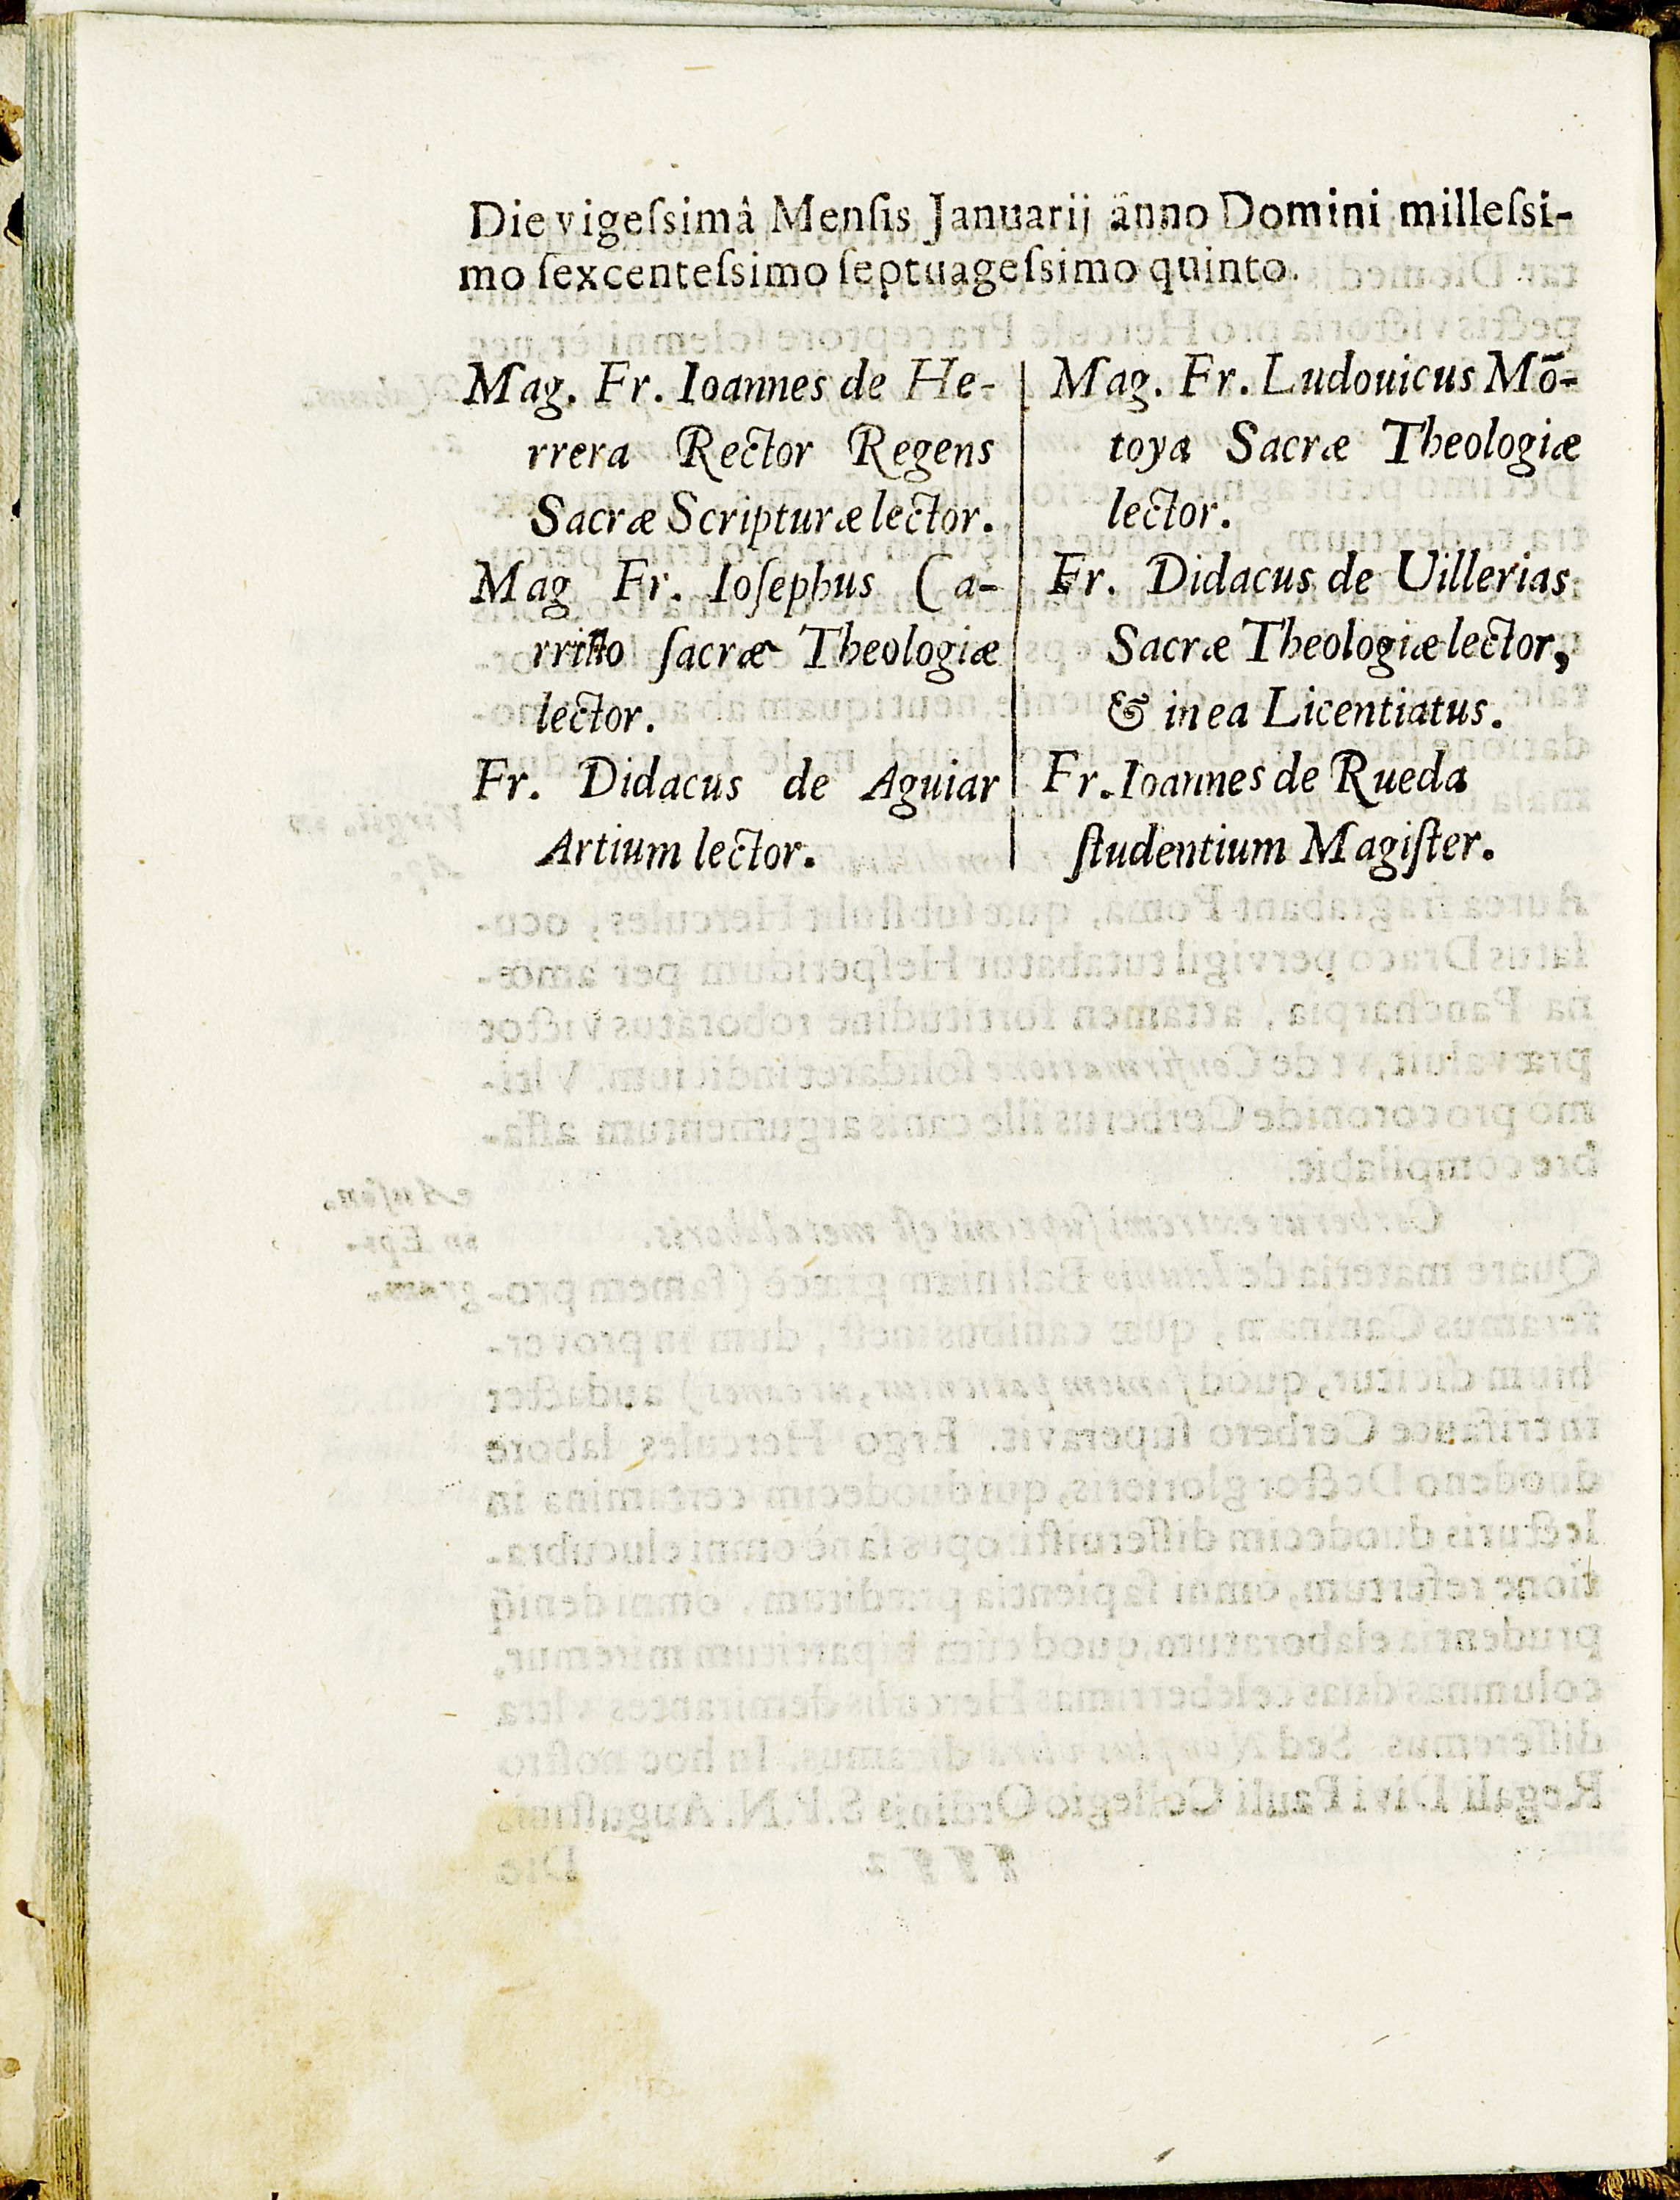 Die vigeſsimâ Menſis Januarij ânno Domini milleſsi-
mo ſexcenteſsimo ſeptuageſsimo quinto.
Mag. Fr. Ioannes de He-
rrera Rector Regens
Sacræ Scripturæ lector.
Mag Fr. Ioſephus Ca-
rrillo ſacræ Theologiæ
lector.
Fr. Didacus de Aguiar
Artium lector.
Mag. Fr. Ludouicus Mõ-
toya Sacræ Theologiæ
lector.
Fr. Didacus de Uillerias
Sacræ Theologiæ lector,
& in ea Licentiatus.
Fr. Ioannes de Rueda
ſtudentium Magiſter.